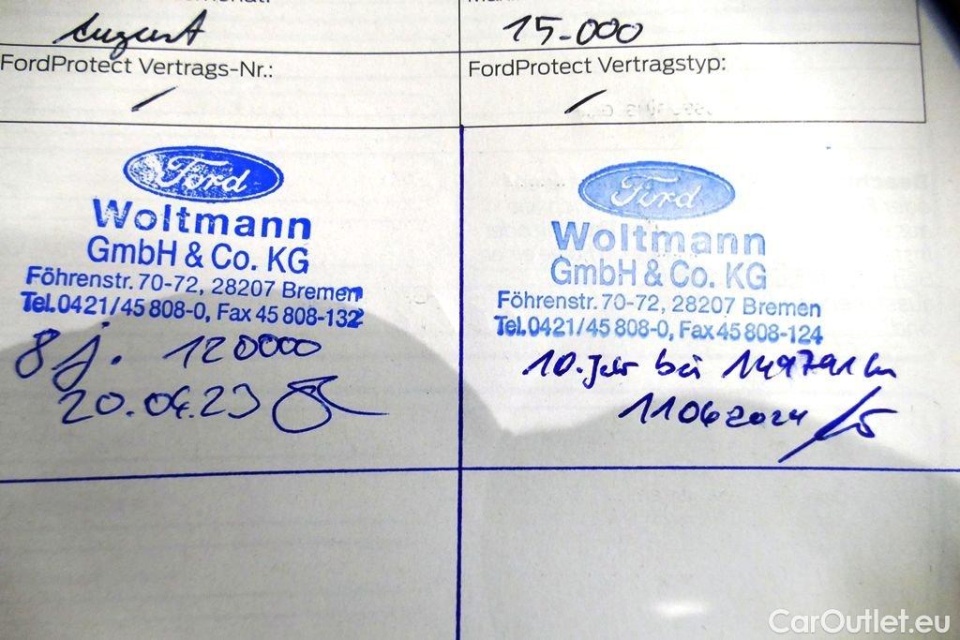 August
15-000
FordProtect Vertrags-Nr.:
FordProtect Vertragstyp:
/
/
Ford
Woltmann
GmbH & Co. KG
Föhrenstr. 70-72, 28207 Bremen
Tel. 0421/45 808-0, Fax 45 808-132
8 J. 120000
20.04.23
Ford
Woltmann
GmbH & Co. KG
Föhrenstr. 70-72, 28207 Bremen
Tel. 0421/45 808-0, Fax 45 808-124
10. bei
11062024
CarOutlet.eu